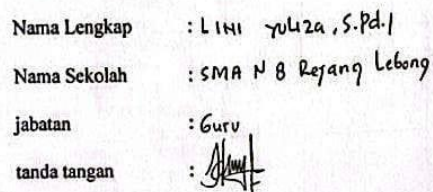 Nama Lengkap : LINI YULIZA, S.Pd.I
Nama Sekolah : SMA N 8 Rejang Lebong
jabatan : Guru
tanda tangan :